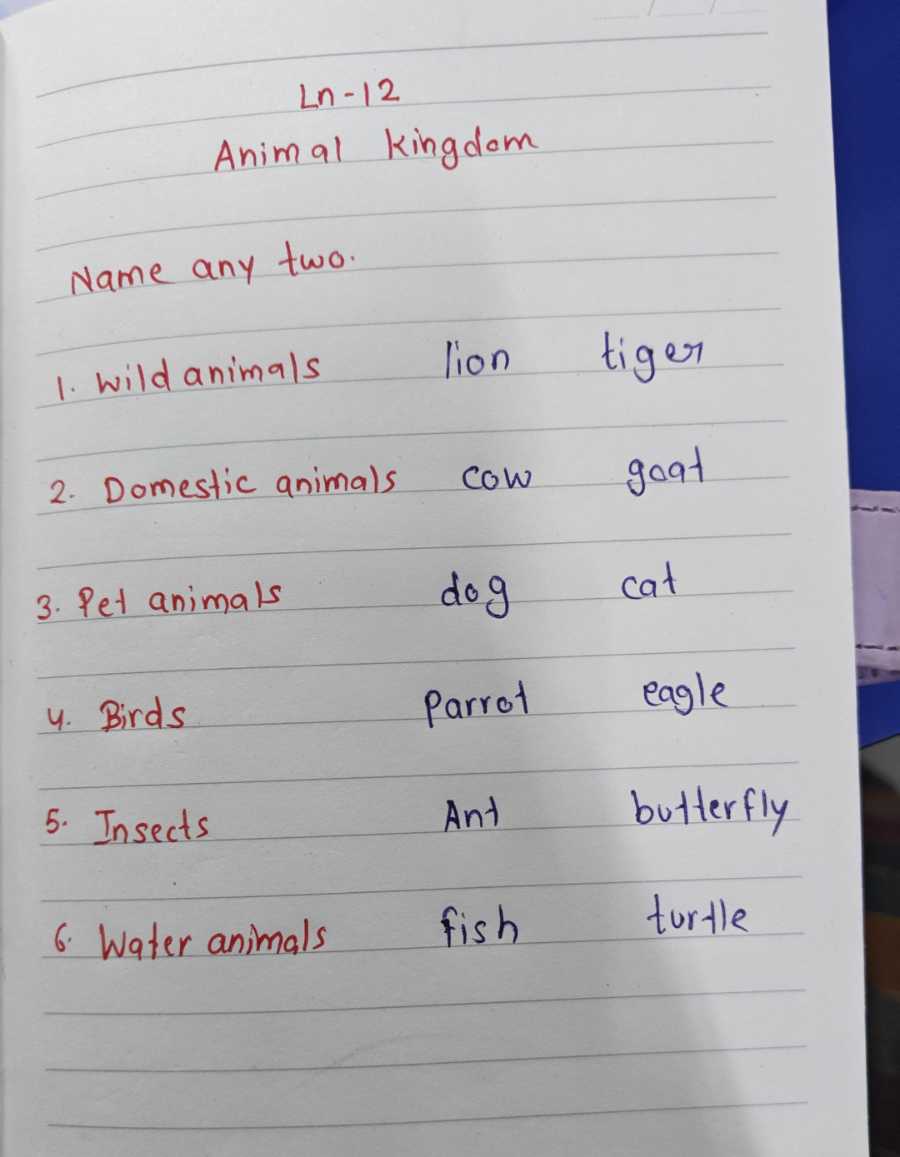 Ln-12
Animal kingdom
Name any two.
1. wild animals lion tiger
2. Domestic animals cow goat
3. Pet animals dog cat
4. Birds Parrot eagle
5. Insects Ant butterfly
6. Water animals fish turtle